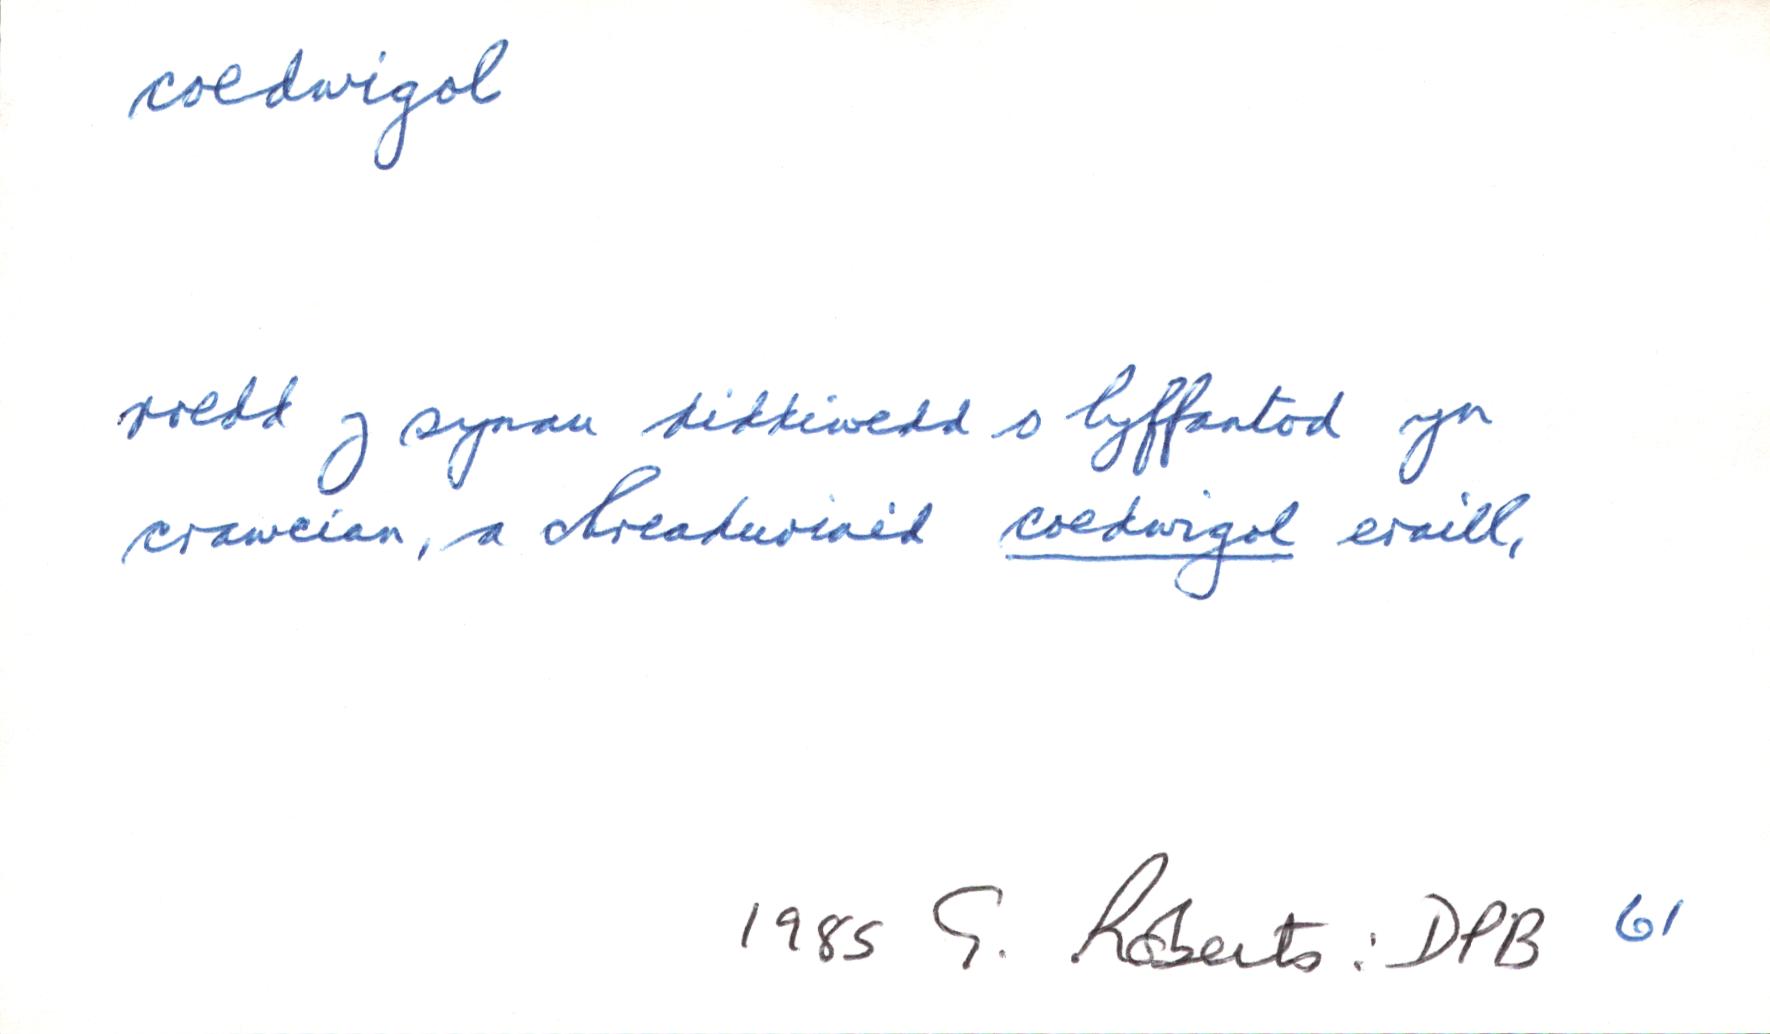 coedwigol
roedd y synau diddiwedd o lyffantod yn
crawcian, a chreaduriaid coedwigol eraill,
1985 G. Roberts: DPB 61